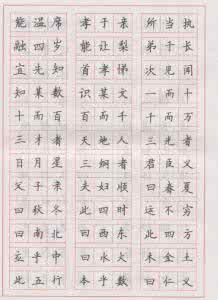 能温席 孝于亲 所当执
融四岁 能让梨 弟于长
宜先知 首孝悌 次见闻
知某数 识某文 一而十
十而百 百而千 千而万
三才者 天地人 三光者
日月星 三纲者 君臣义
父子亲 夫妇顺 曰春夏
曰秋冬 此四时 运不穷
曰南北 曰西东 此四方
应乎中 曰水火 木金土
此五行 本乎数 曰仁义